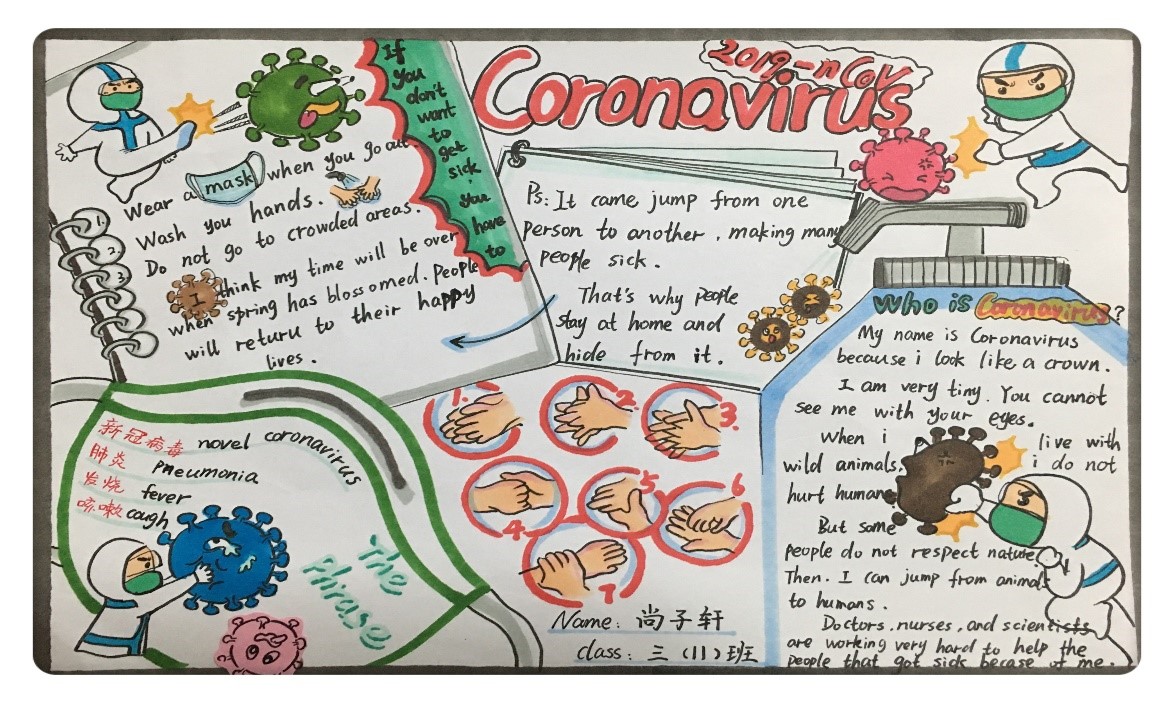 2019-nCoV
Coronavirus
If
you
don't
want
to
get
sick,
you
have
to
1.
2.
3.
Wear a mask when you go out.
Wash you hands.
Do not go to crowded areas.
I think my time will be over
when spring has blossomed. People
will returu to their happy
lives.
Ps: It came jump from one
person to another, making many
people sick.
That's why people
stay at home and
hide from it.
Who is Coronavirus?
My name is Coronavirus
because i look like a crown.
I am very tiny. You cannot
see me with your eyes.
When i live with
wild animals, i do not
hurt human
But some
people do not respect nature
Then. I can jump from animals
to humans.
Doctors, nurses, and scientists
are working very hard to help the
people that got sick becase of me.
新冠病毒 novel coronavirus
肺炎 Pneumonia
发烧 fever
咳嗽 cough
The
Phrase
1.
2.
3.
4
5
6
7
Name: 尚子轩
class: 三（11）班